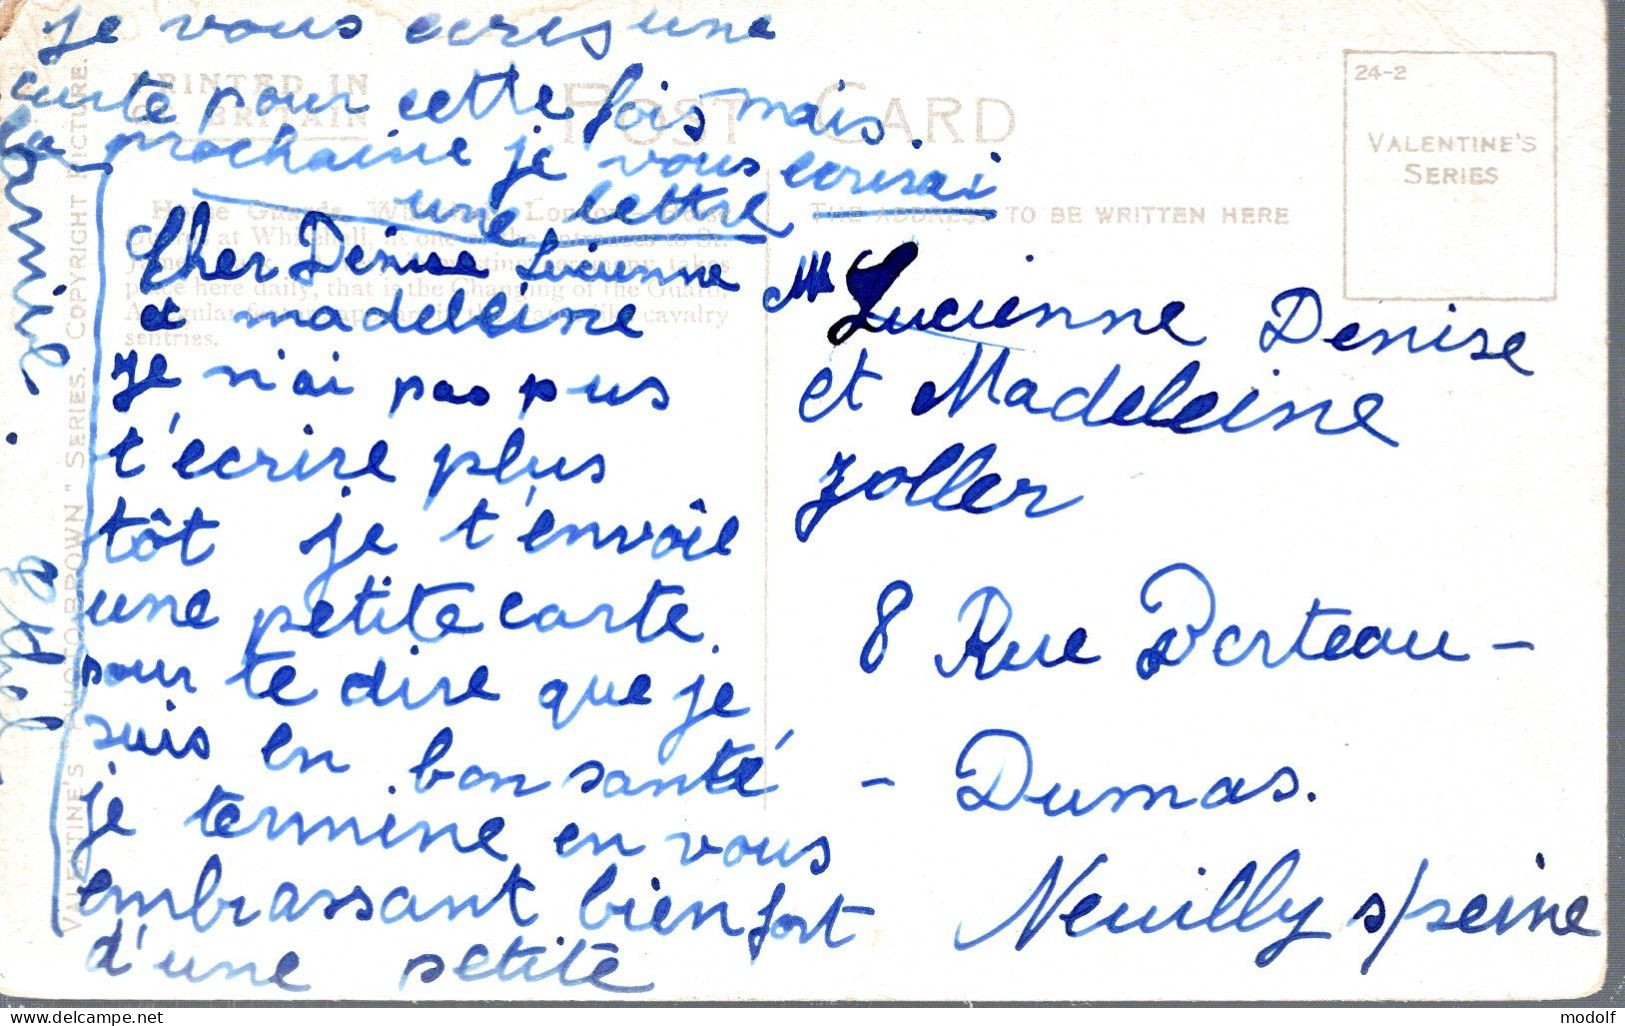 je vous ecris une
carte pour cette fois mais.
la prochaine je vous ecrisai
une lettre
Cher Denise Lucienne
et madeleine
Je n'ai pas pus
t'ecrire plus
tôt je t'envoie
une petite carte.
pour te dire que je
suis en bon santé
je termine en vous
embrassant bien fort
d'une petite
Lucienne Denise
et Madeleine
Zoller
8 Rue Berteau -
- Dumas.
Neuilly s/seine
PRINTED IN
GT. BRITAIN
POST CARD
THE ADDRESS TO BE WRITTEN HERE
24-2
VALENTINE'S
SERIES
Horse Guards, Whitehall, London.
at Whitehall, at one of the entrances to St.
takes
place here daily, that is the Changing of the Guard.
cavalry
sentries.
VALENTINE'S "PHOTO BROWN" SERIES. COPYRIGHT PICTURE.
delcampe.net
modolf